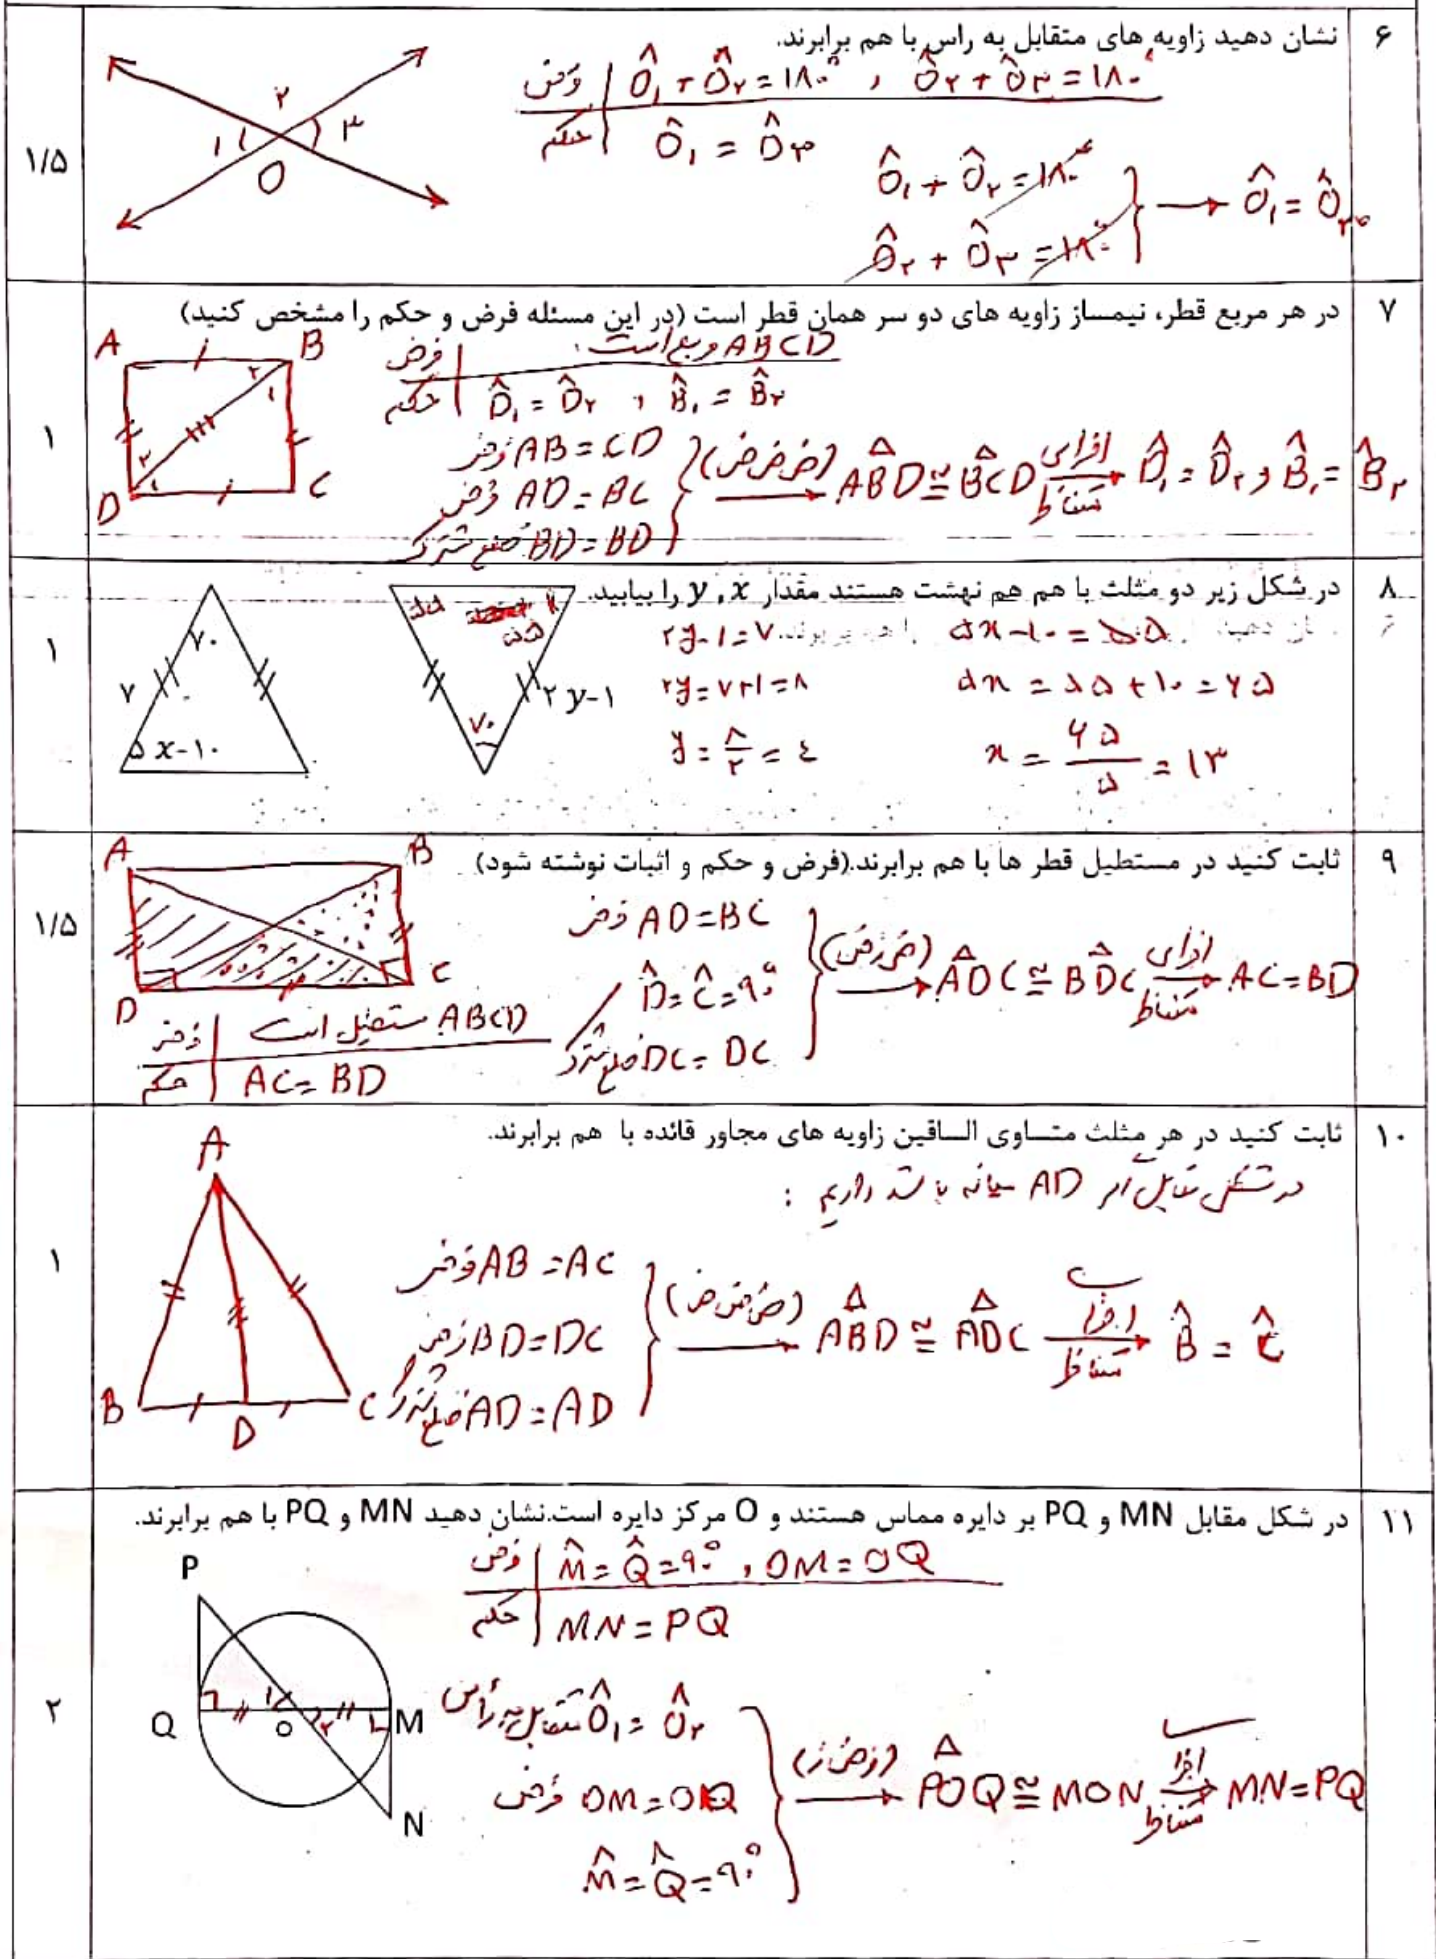 ۶ نشان دهید زاویه های متقابل به راس با هم برابرند.
۱/۵
فرض Ô۱ + Ô۲ = ۱۸۰° , Ô۲ + Ô۳ = ۱۸۰°
حکم Ô۱ = Ô۳
۱ ۲ ۳ O
Ô۱ + Ô۲ = ۱۸۰°
Ô۲ + Ô۳ = ۱۸۰°
→ Ô۱ = Ô۳
۷ در هر مربع قطر، نیمساز زاویه های دو سر همان قطر است (در این مسئله فرض و حکم را مشخص کنید)
۱
A B C D
۱ ۲ ۱ ۲
فرض ABCD مربع است.
حکم D̂۱ = D̂۲ , B̂۱ = B̂۲
AB = CD فرض
AD = BC فرض
BD = BD ضلع مشترک
(ض ض ض) → ABD ≅ BCD اجزای متناظر → D̂۱ = D̂۲ , B̂۱ = B̂۲
۸ در شکل زیر دو مثلث با هم هم نهشت هستند مقدار x , y را بیابید.
۱
۷۰
۷
۵x-۱۰
۵۵
۵۵
۷۰
۲y-۱
۲y-۱=۷
۲y=۷+۱=۸
y = ۸/۲ = ٤
۵x-۱۰ = ۵۵
۵x = ۵۵+۱۰ = ۶۵
x = ۶۵/۵ = ۱۳
۹ ثابت کنید در مستطیل قطر ها با هم برابرند.(فرض و حکم و اثبات نوشته شود)
۱/۵
A B C D
فرض ABCD مستطیل است
حکم AC = BD
AD = BC فرض
D̂ = Ĉ = ۹۰°
DC = DC ضلع مشترک
(ض ز ض) → ADC ≅ BDC اجزای متناظر → AC = BD
۱۰ ثابت کنید در هر مثلث متساوی الساقین زاویه های مجاور قائده با هم برابرند.
۱
در شکل مقابل اگر AD میانه باشد داریم :
A B C D
AB = AC فرض
BD = DC فرض
AD = AD ضلع مشترک
(ض ض ض) → ABD ≅ ADC اجزا متناظر → B̂ = Ĉ
۱۱ در شکل مقابل MN و PQ بر دایره مماس هستند و O مرکز دایره است.نشان دهید MN و PQ با هم برابرند.
۲
P
Q O M
۱ ۲
N
فرض M̂ = Q̂ = ۹۰° , OM = OQ
حکم MN = PQ
Ô۱ = Ô۲ متقابل به رأس
OM = OQ فرض
M̂ = Q̂ = ۹۰°
(ز ض ز) → POQ ≅ MON اجزا متناظر → MN = PQ